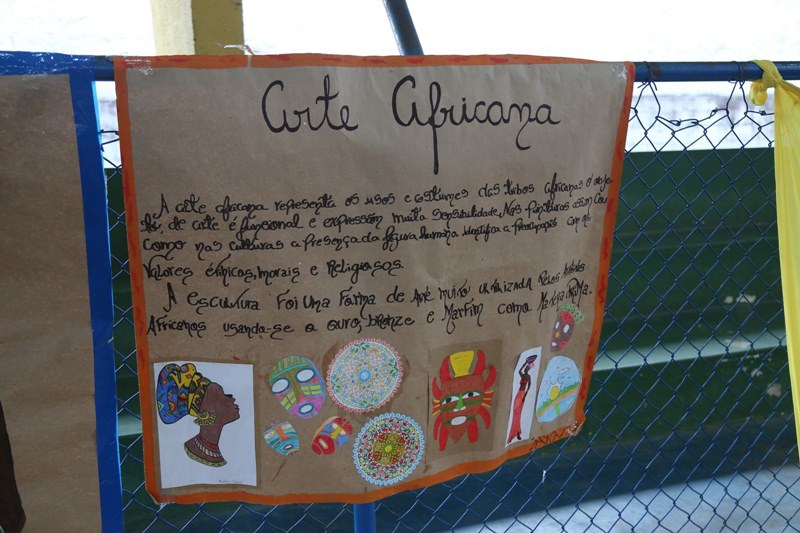 Arte Africana
A arte africana representa os usos e costumes das tribos africanas o obje
to, de arte é funcional e expressam muita sensibilidade, Nas pinturas assim co
como nas culturas a presença da figura humana identifica a preocupação com os
Valores étnicos, morais e Religiosos.
A escultura foi uma forma de arte muito utilizada pelos Artistas
Africanos usando-se o ouro, bronze e Marfim como Matéria Prima.